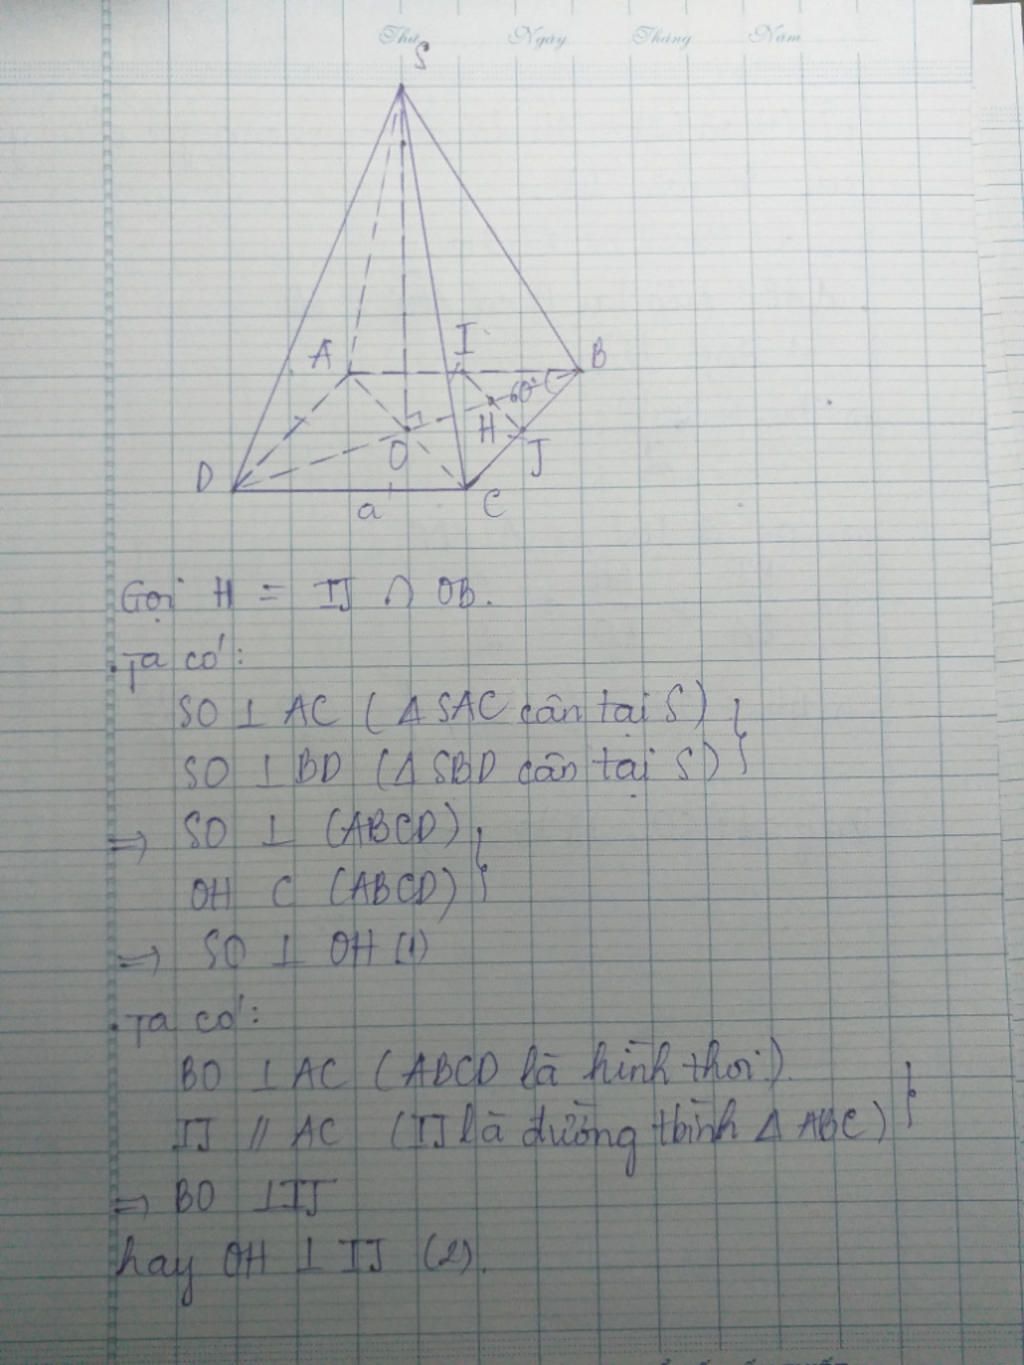 Thứ Ngày Tháng Năm
S
A I B
60°
H
D O J
a C
Gọi H = IJ ∩ OB.
. Ta có:
SO ⊥ AC (Δ SAC cân tại S) }
SO ⊥ BD (Δ SBD cân tại S) }
=> SO ⊥ (ABCD) }
OH ⊂ (ABCD) }
=> SO ⊥ OH (1)
. Ta có:
BO ⊥ AC (ABCD là hình thoi). }
IJ // AC (IJ là đường tbình Δ ABC) }
=> BO ⊥ IJ
hay OH ⊥ IJ (2).